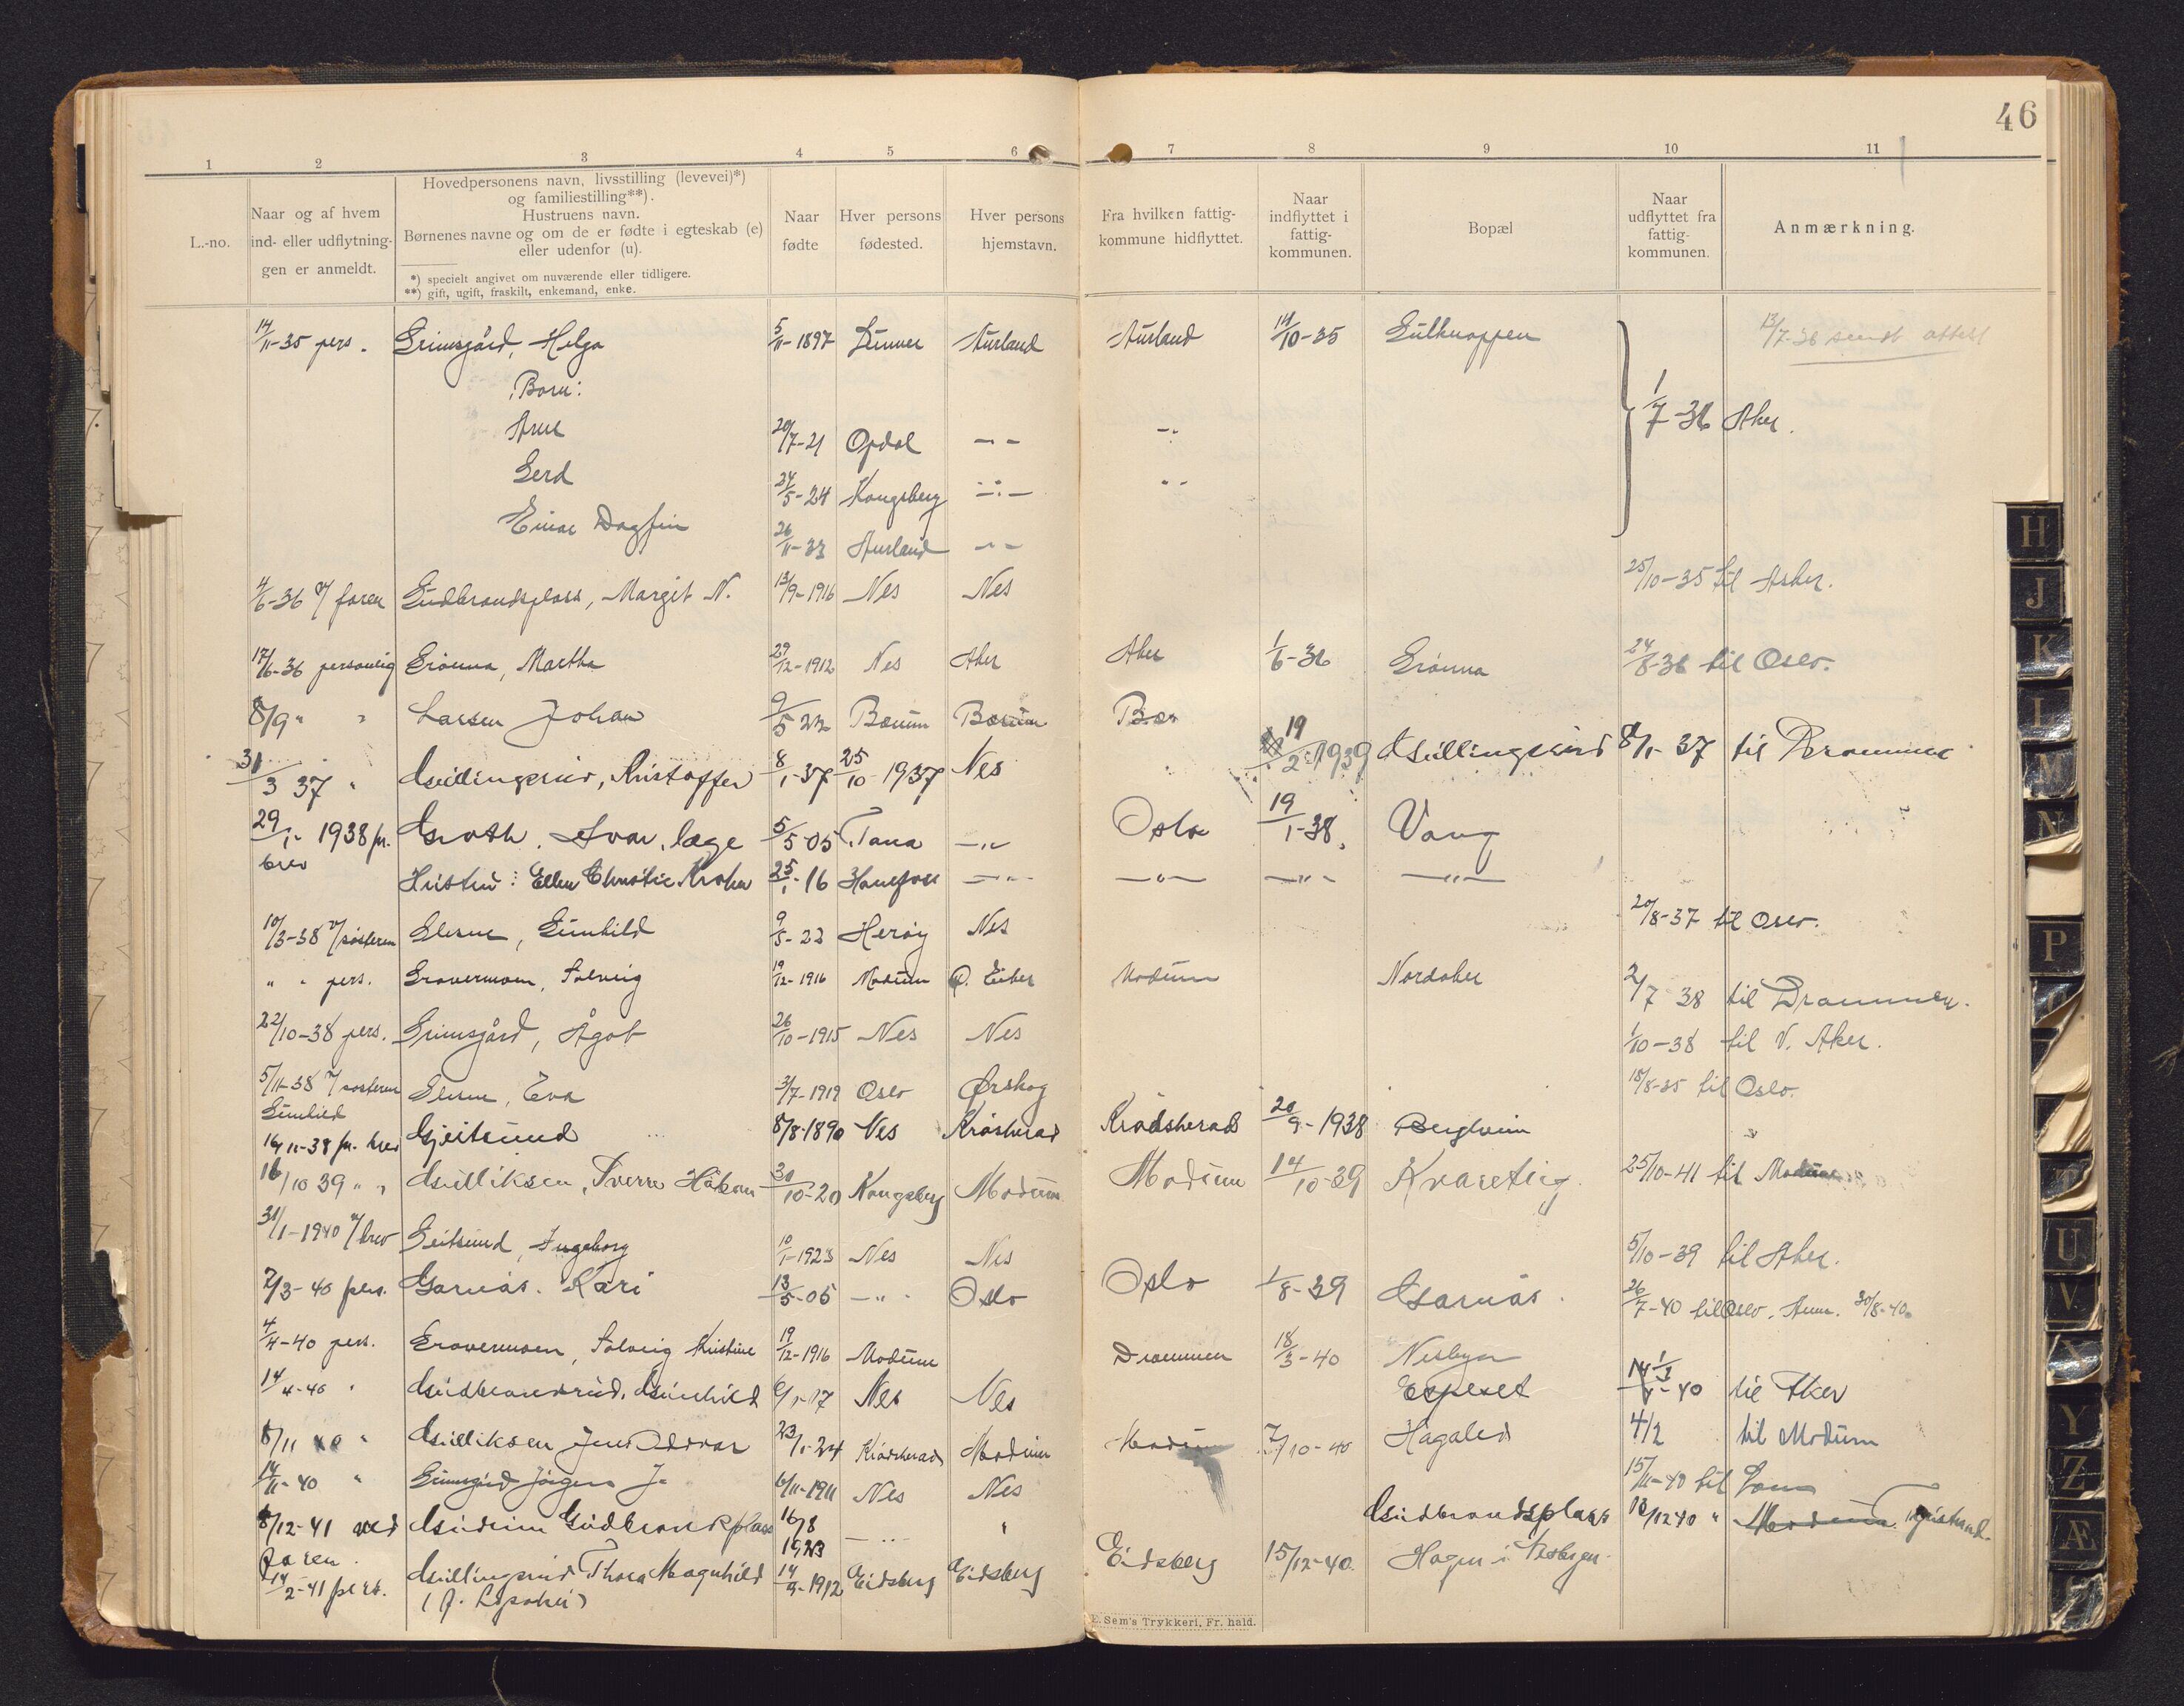 46
1 2 3 4 5 6 7 8 9 10 11
L.-no.
Naar og af hvem
ind- eller udflytnin-
gen er anmeldt.
Hovedpersonens navn, livsstilling (levevei)*)
og familiestilling**).
Hustruens navn.
Børnenes navne og om de er fødte i egteskab (e)
eller udenfor (u).
*) specielt angivet om nuværende eller tidligere.
**) gift, ugift, fraskilt, enkemand, enke.
Naar
fødte
Hver persons
fødested.
Hver persons
hjemstavn.
Fra hvilken fattig-
kommune hidflyttet.
Naar
indflyttet i
fattig-
kommunen.
Bopæl
Naar
udflyttet fra
fattig-
kommunen.
Anmærkning.
14/11-35 pers. Grimsgård, Helga 5/11-1897 Lunner Aurland Aurland 14/10-35 Gulknappen 13/7-36 sendt attest
Born:
1/7-36 Aker.
Arne 20/7-21 Opdal -"- -"-
Gerd 24/5-24 Kongsberg -"- -"-
Einar Dagfin 26/11-33 Aurland -"-
4/6-36 v/ faren Gudbrandsplass, Margit N. 13/9-1916 Nes Nes 25/10-35 til Asker.
17/6-36 personlig Grönna, Martha 29/12-1912 Nes Aker Aker 1/6-36 Grönna 24/8-36 til Oslo.
8/9 " " Larsen Johan 9/5 22 Bærum Bærum Bær
31/3 37 " Gullingsrud, Kristoffer 8/1-37 25/10-1937 Nes 19/2-1939 Gullingsrud 8/1-37 til Drammen
29/1-1938 pr. Groth. Ivar, læge 5/5-05 Tana -"- Oslo 19/1-38. Vang
brev
Hustru: Ellen Christie 25/1-16 Hønefoss -"- -"- -"- -"-
10/3-38 v/ søsteren Glesne, Gunhild 9/5-22 Herøy Nes 20/8-37 til Oslo.
" " pers. Gravermoen, Solveig 19/12-1916 Modum Ø. Eiker Modum Nordaker 2/7 38 til Drammen.
22/10-38 pers. Grimsgård, Ågot 26/10-1915 Nes Nes 1/10-38 til V. Aker.
5/11-38 v/ søsteren Glesne, Eva 3/7-1919 Oslo Ørskog 18/8-35 til Oslo.
Gunhild
16/11-38 pr. brev Gjeitsund 8/8-1890 Nes Krødsherad Krødsherad 20/9-1938 Bergheim
16/10 39 " " Gulliksen, Sverre Håkon 30/10-20 Kongsberg Modum Modum 14/10-39 Kvarteig 25/10-41 til Modum
31/1-1940 v/ brev Geitsund, Ingeborg 10/1-1923 Nes Nes 5/10-39 til Aker.
7/3-40 pers. Garnås. Kari 13/5-05 -"- Oslo Oslo 1/8-39 Garnås. 26/7-40 til Oslo. Anm. 30/8-40.
4/4-40 pers. Gravermoen, Solveig Kristine 19/12-1916 Modum Drammen 18/3-40 Nesbyen
14/4-40 " Gudbrandsrud, Gunhild 6/1-17 Nes Nes Espeset 14/4-40 til Aker
8/11 40 " Gulliksen Jens Oddvar 23/1-24 Krødsherad Modum Modum 7/10-40 Hagaled 4/2 til Modum
14/11-40 " Grimsgård Jörgen J. 6/11-1911 Nes Nes 15/11-40 til
8/12-41 ved Gudrun Gudbrandsplass 16/8 1923 -"- " Gudbrandsplass 13/12 40 " Modum
faren.
14/2-41 pers. Gullingsrud Thora Magnhild 14/9-1912 Eidsberg Eidsberg Eidsberg 15/12-40. Hagen i Nesbyen.
E. Sem's Trykkeri, Fr. hald.
H
J
K
L
M
N
P
T
U
V
X
Y
Z
Æ